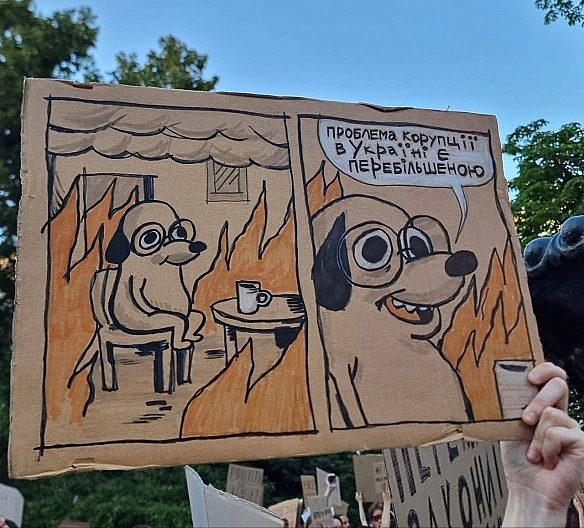 проблема корупції
в Україні є
перебільшеною
ЗАКОНИ